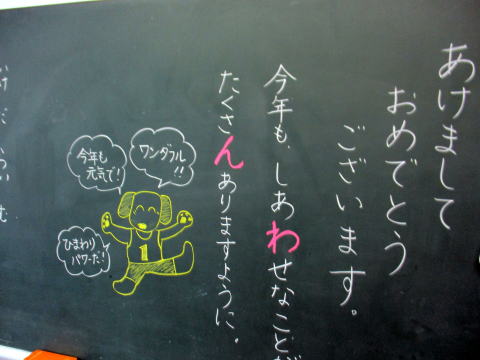 あけまして
おめでとう
ございます。
今年も、しあわせなことが
たくさんありますように。
ワンダフル!!
今年も
元気で!
ひまわり
パワーだ!
1